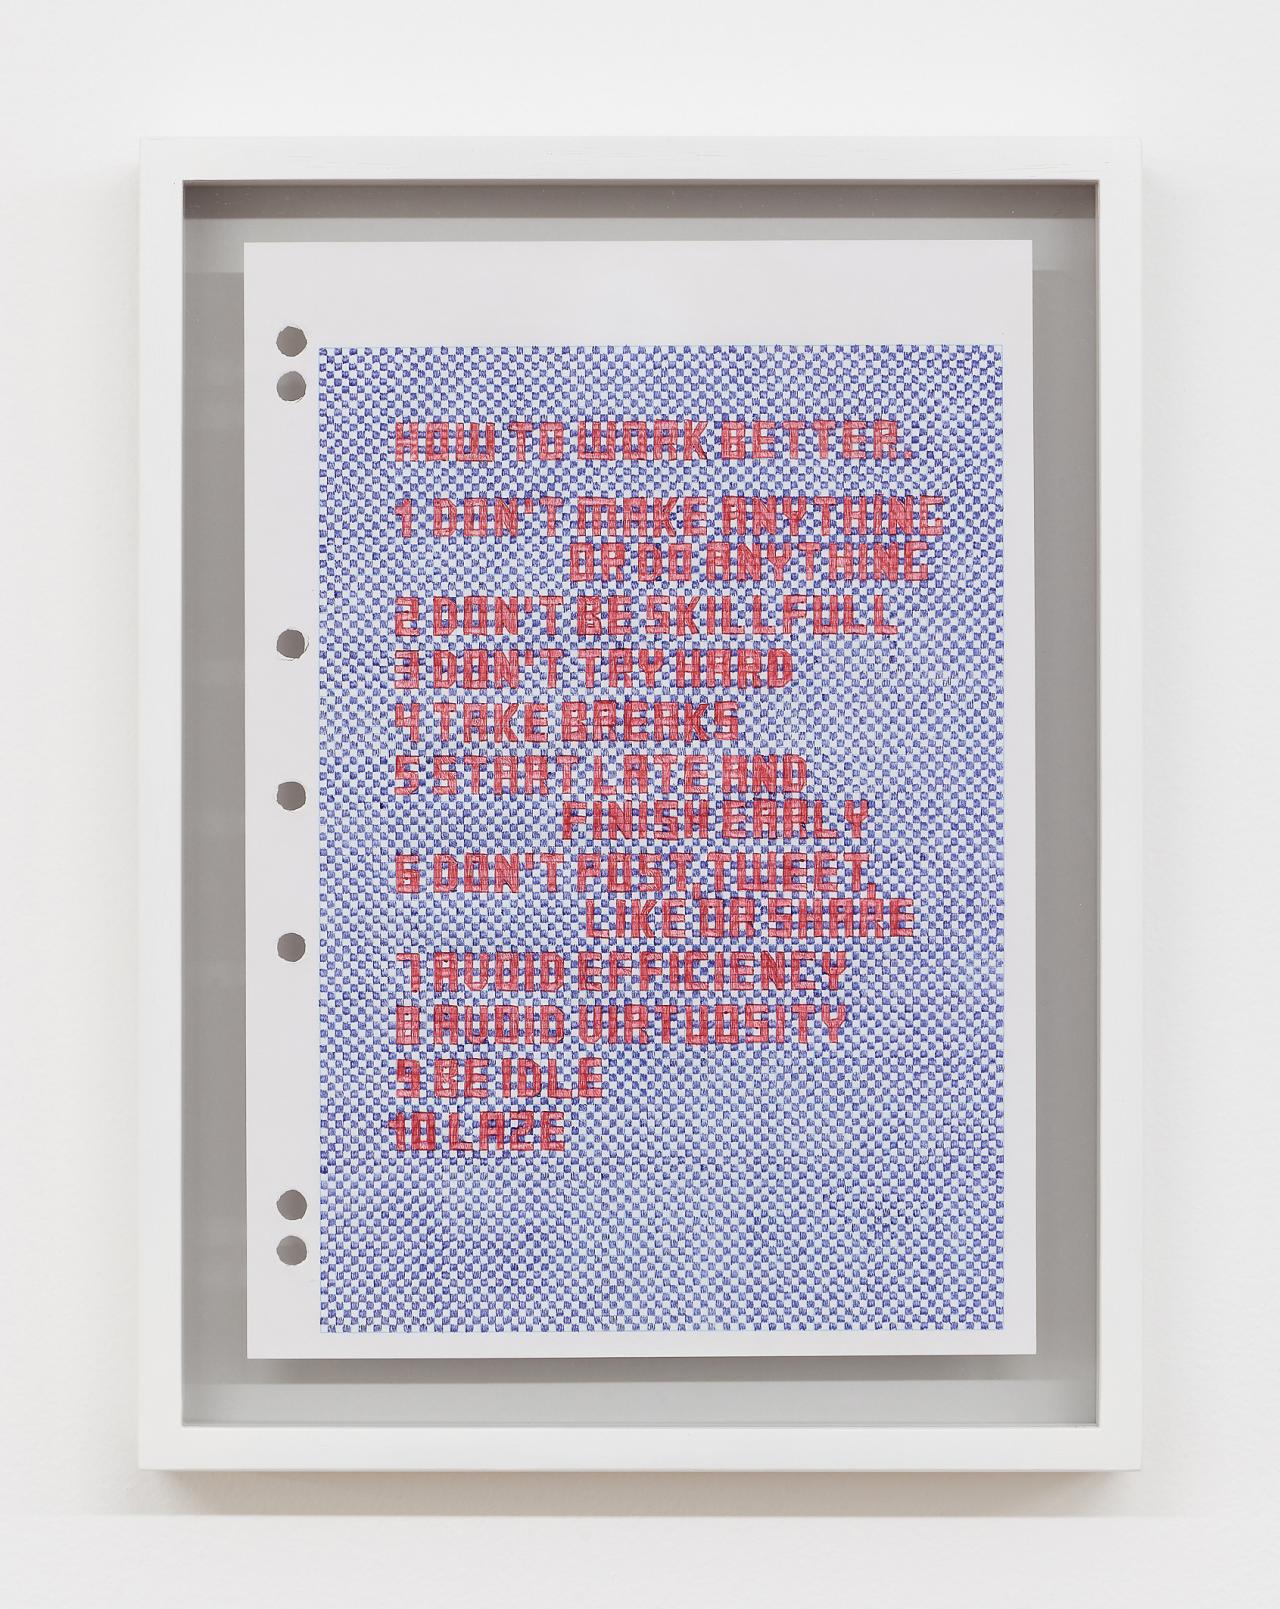 HOW TO WORK BETTER.
1 DON'T MAKE ANYTHING
OR DO ANYTHING
2 DON'T BE SKILLFULL
3 DON'T TRY HARD
4 TAKE BREAKS
5 START LATE AND
FINISH EARLY
6 DON'T POST, TWEET,
LIKE OR SHARE
7 AVOID EFFICIENCY
8 AVOID VIRTUOSITY
9 BE IDLE
10 LAZE